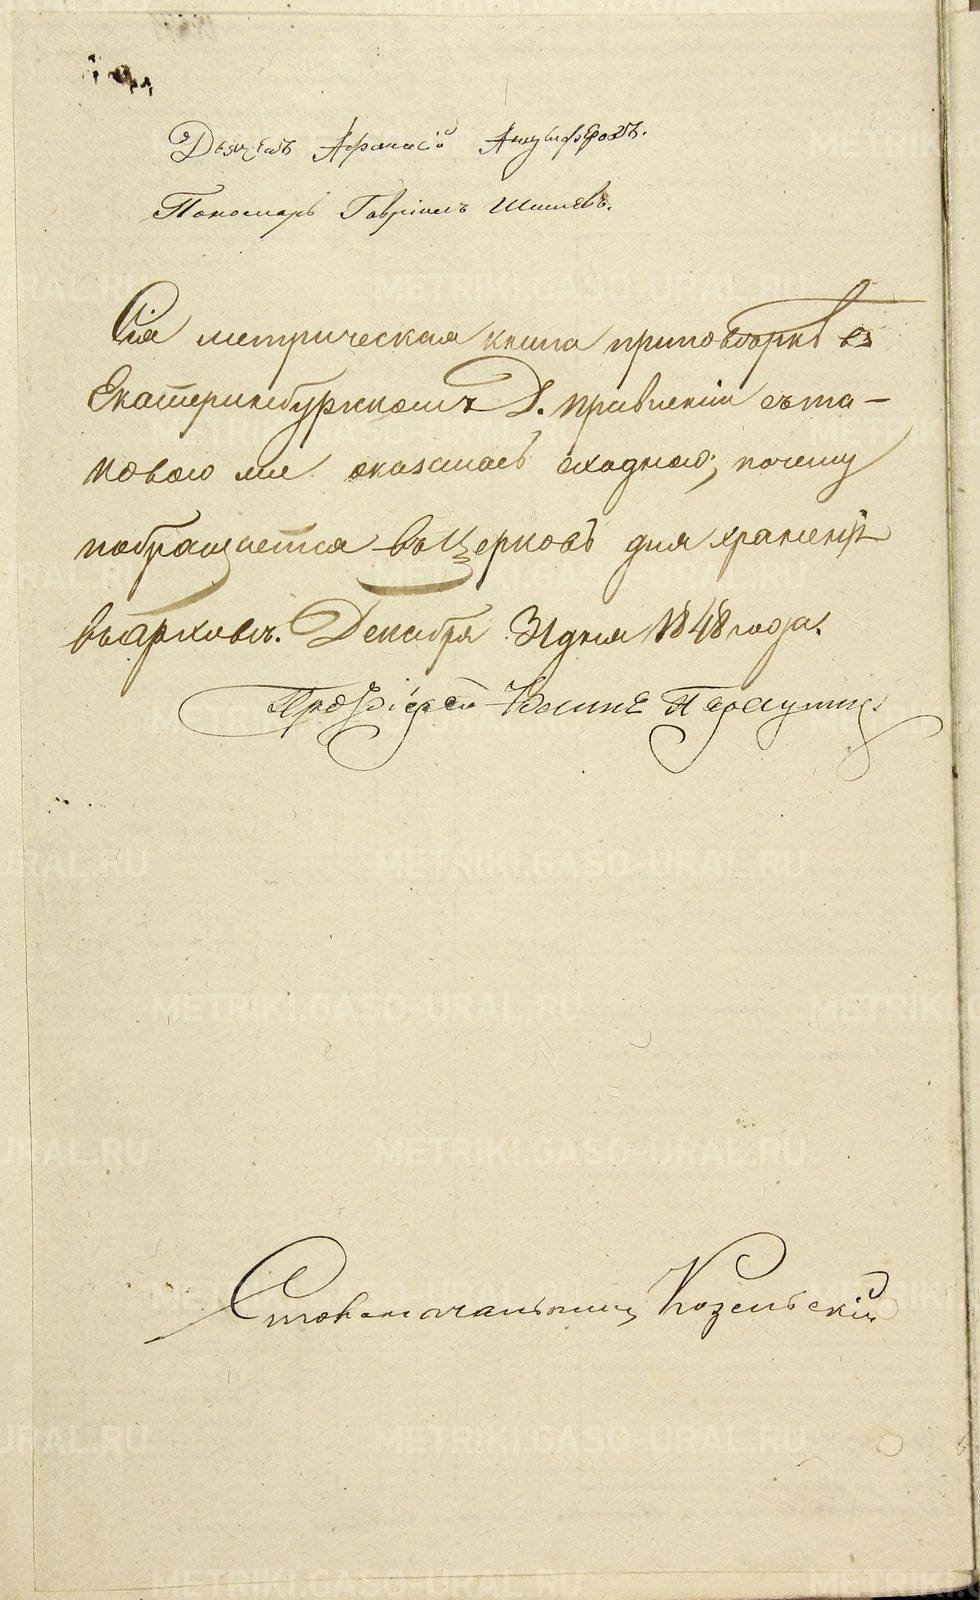 Дьячекъ Афанасій Анцыферовъ.
Пономарь Гавріилъ Шишевъ.
Сія метрическая книга при повѣркѣ въ
Екатеринбургскомъ Д. правленіи съ та-
ковою же оказалась сходною, почему
и обращается въ церковь для храненія
въ архивѣ. Декабря 31 дня 1848 года.
Протоіерей Іоаннъ
Столоначальникъ Козельскій
METRIKI.GASO-URAL.RU